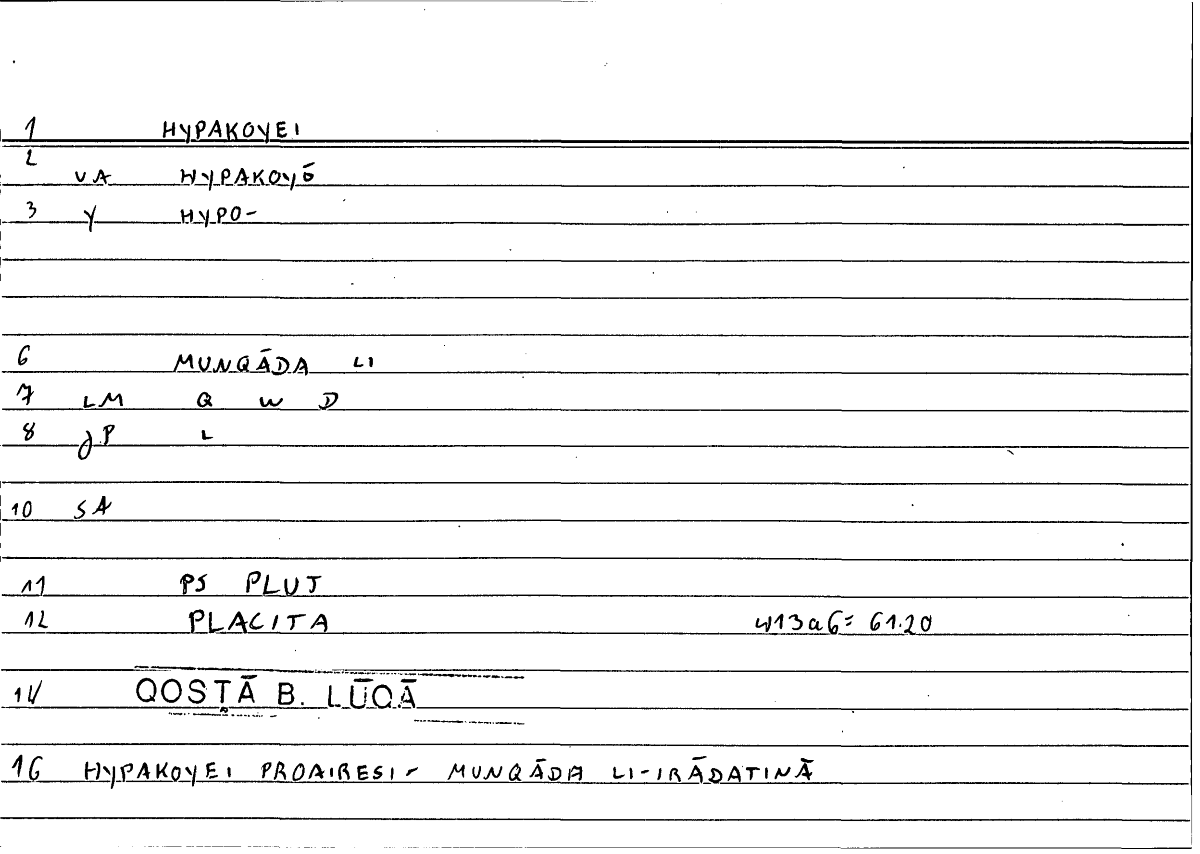 1 HYPAKOYEI
2
VA HYPAKOYŌ
3 Y HYPO-
6 MUNQĀDA LI
7 LM Q W D
8 JP L
10 SA
11 PS PLUT
12 PLACITA W13a6= 61.20
14 QOSṬĀ B. LŪQĀ
16 HYPAKOYEI PROAIRESI - MUNQĀDA LI-IRĀDATINĀ